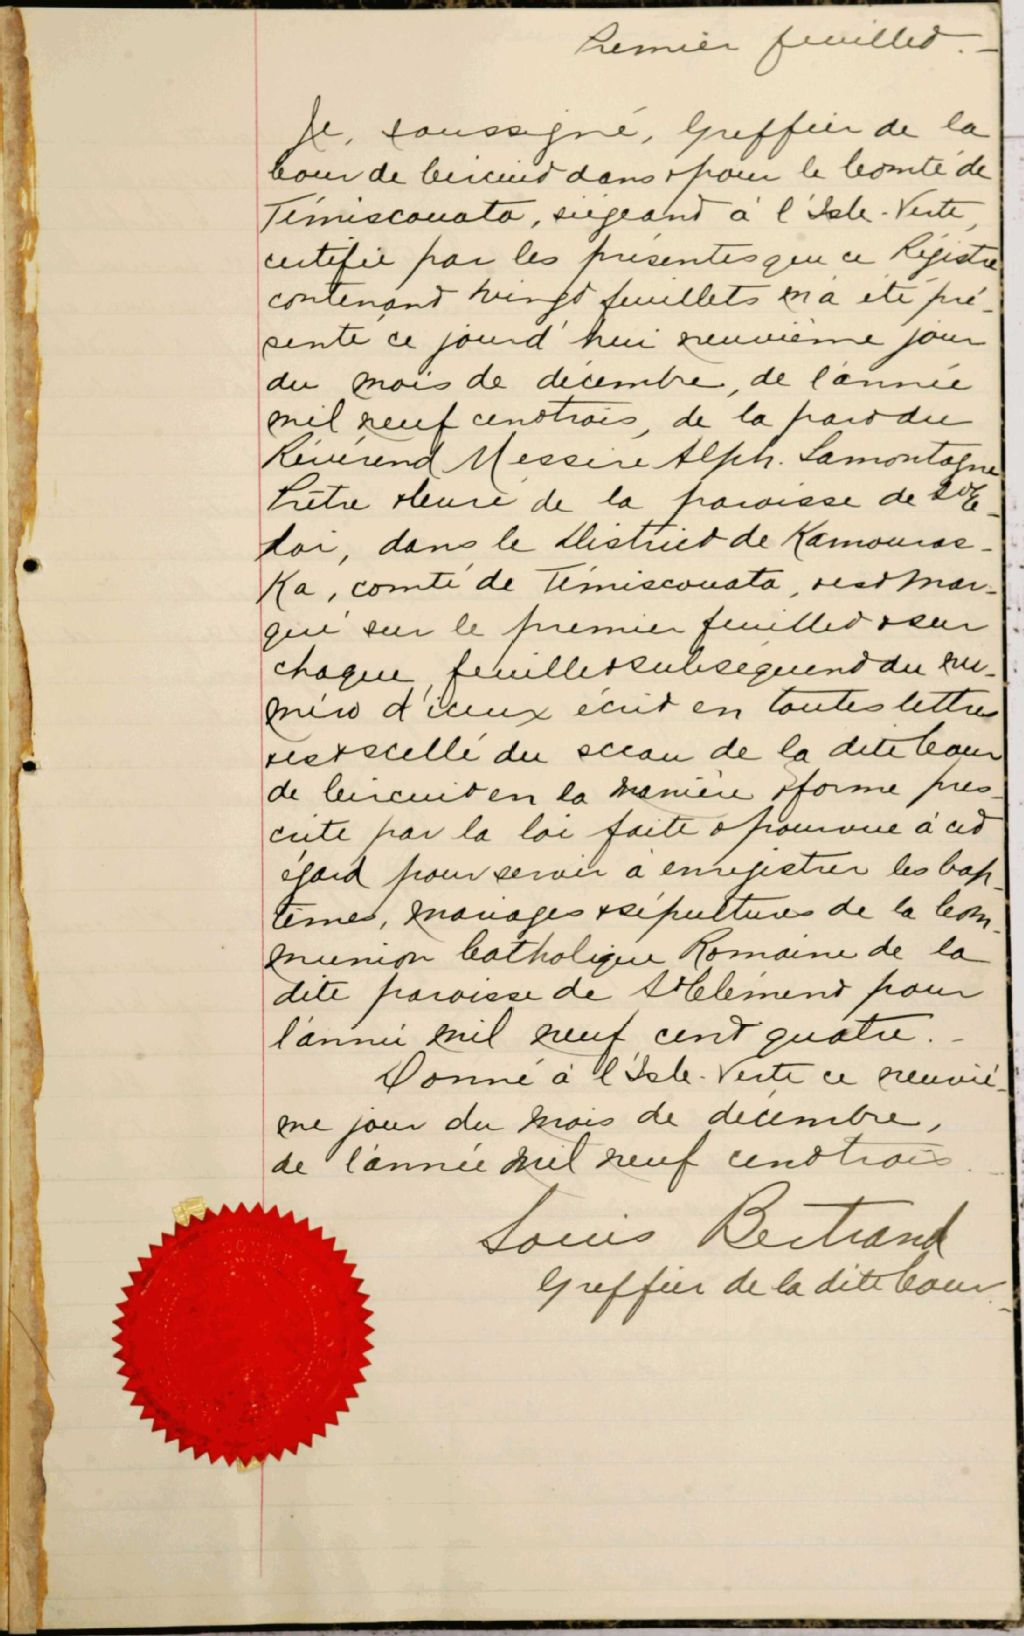 Premier feuillet. -
Je, soussigné, Greffier de la
Cour de Circuit dans & pour le Comté de
Témiscouata, siégeant à l'Isle-Verte,
certifie par les présentes que ce Régistre
contenant vingt feuillets m'a été pré-
senté ce jourd'hui neuvième jour
du mois de décembre, de l'année
mil neuf cent trois, de la part du
Révérend Messire Alph. Lamontagne
Prêtre & Curé de la paroisse de St E-
loi, dans le District de Kamouras-
ka, comté de Témiscouata, & est mar-
qué sur le premier feuillet & sur
chaque feuillet subséquent du nu-
méro d'iceux écrit en toutes lettres
& est scellé du sceau de la dite Cour
de Circuit en la manière & forme pres-
crite par la loi faite & pourvue à cet
égard pour servir à enregistrer les bap-
têmes, mariages & sépultures de la Com-
munion Catholique Romaine de la
dite paroisse de St Clément pour
l'année mil neuf cent quatre. -
Donné à l'Isle-Verte ce neuviè-
me jour du mois de décembre,
de l'année mil neuf cent trois
Louis Bertrand
Greffier de la dite Cour -